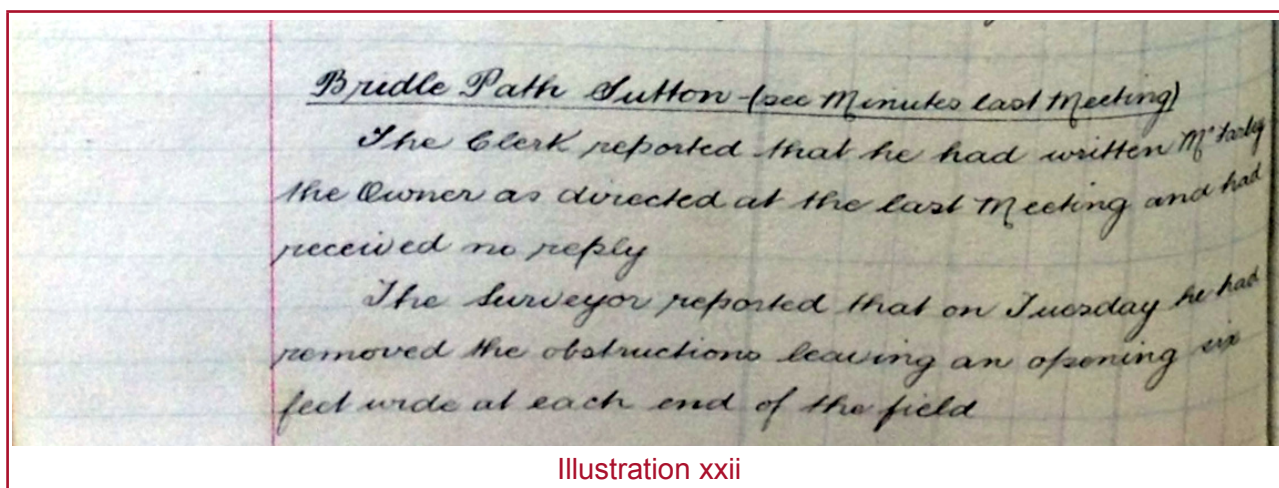 Bridle Path Sutton - (see Minutes last Meeting)
The Clerk reported that he had written Mr
the Owner as directed at the last Meeting and had
received no reply
The Surveyor reported that on Tuesday he had
removed the obstructions leaving an opening six
feet wide at each end of the field
Illustration xxii